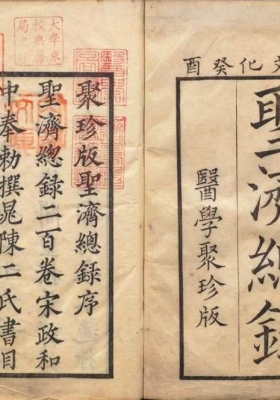 文化癸酉
聖濟總錄
醫學聚珍版
聚珍版聖濟總錄序
聖濟總錄二百卷宋政和
中奉勅撰晁陳二氏書目
大學東
校典籍
局之印